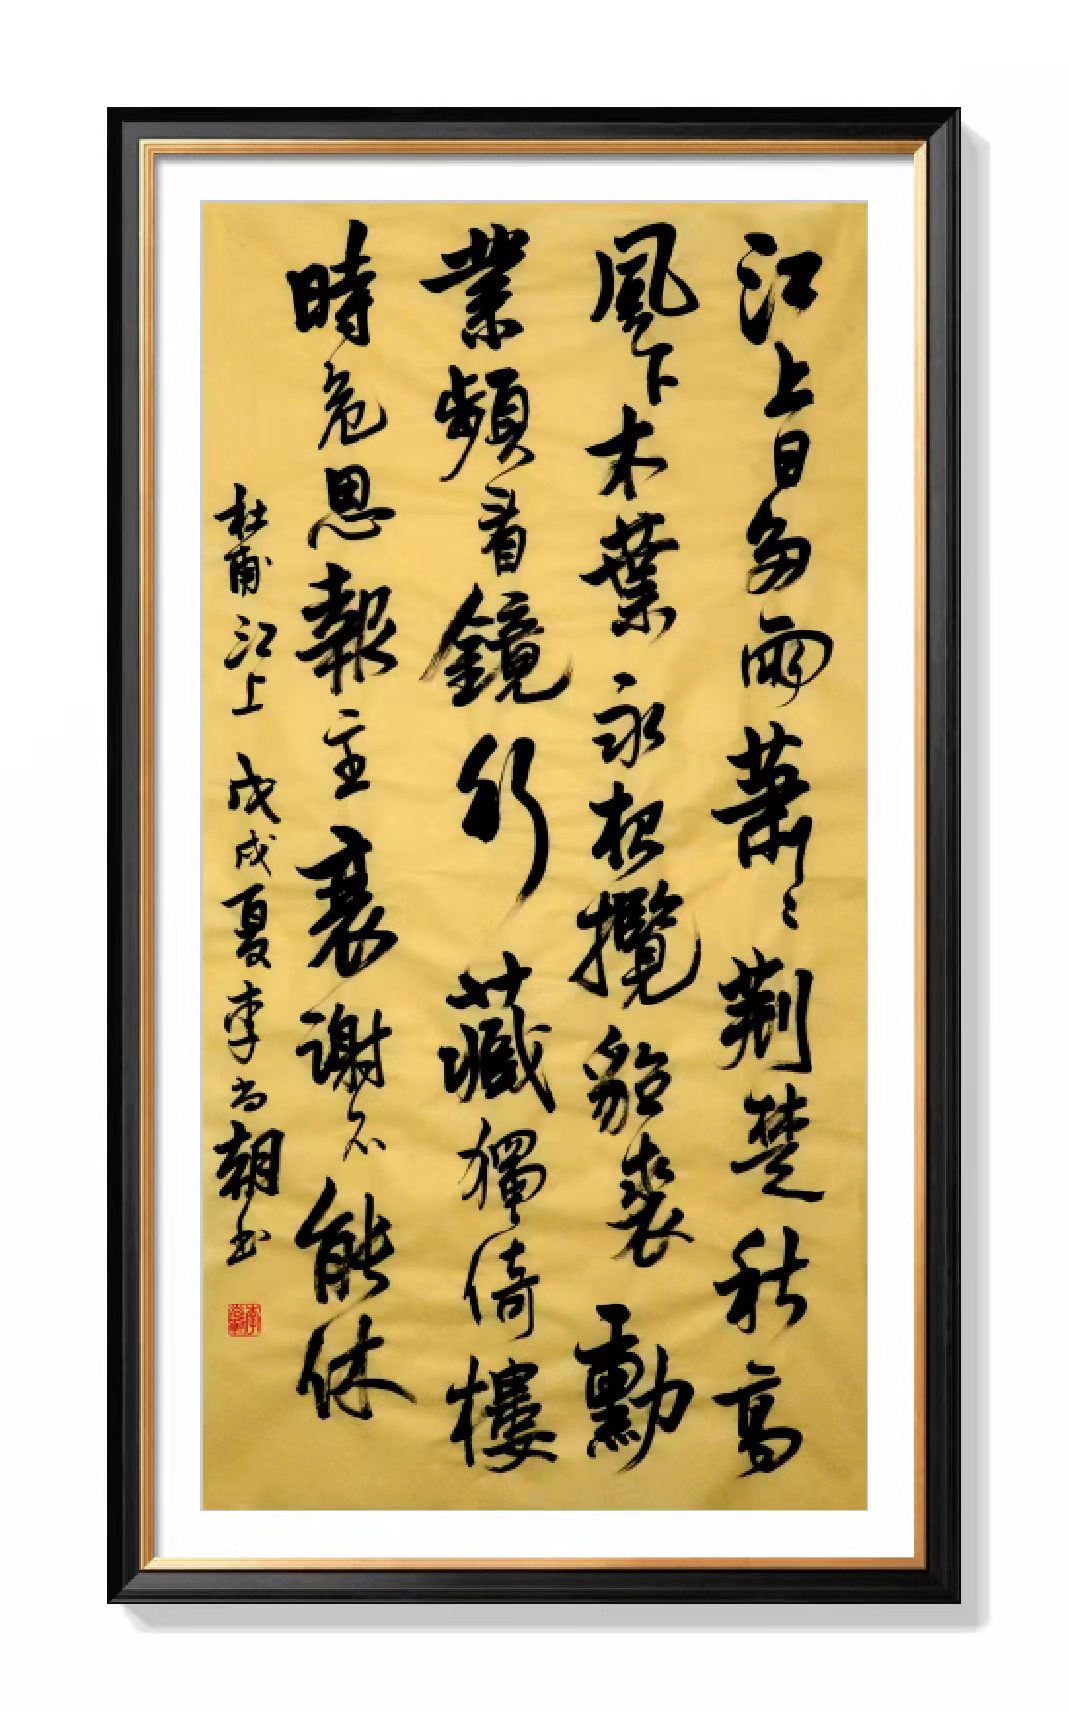 江上日多雨蕭々荆楚秋高
風下木葉永夜攬貂裘勳
業頻看鏡行藏獨倚樓
時危思報主衰謝不能休
杜甫江上 戊戌夏李尚朝书